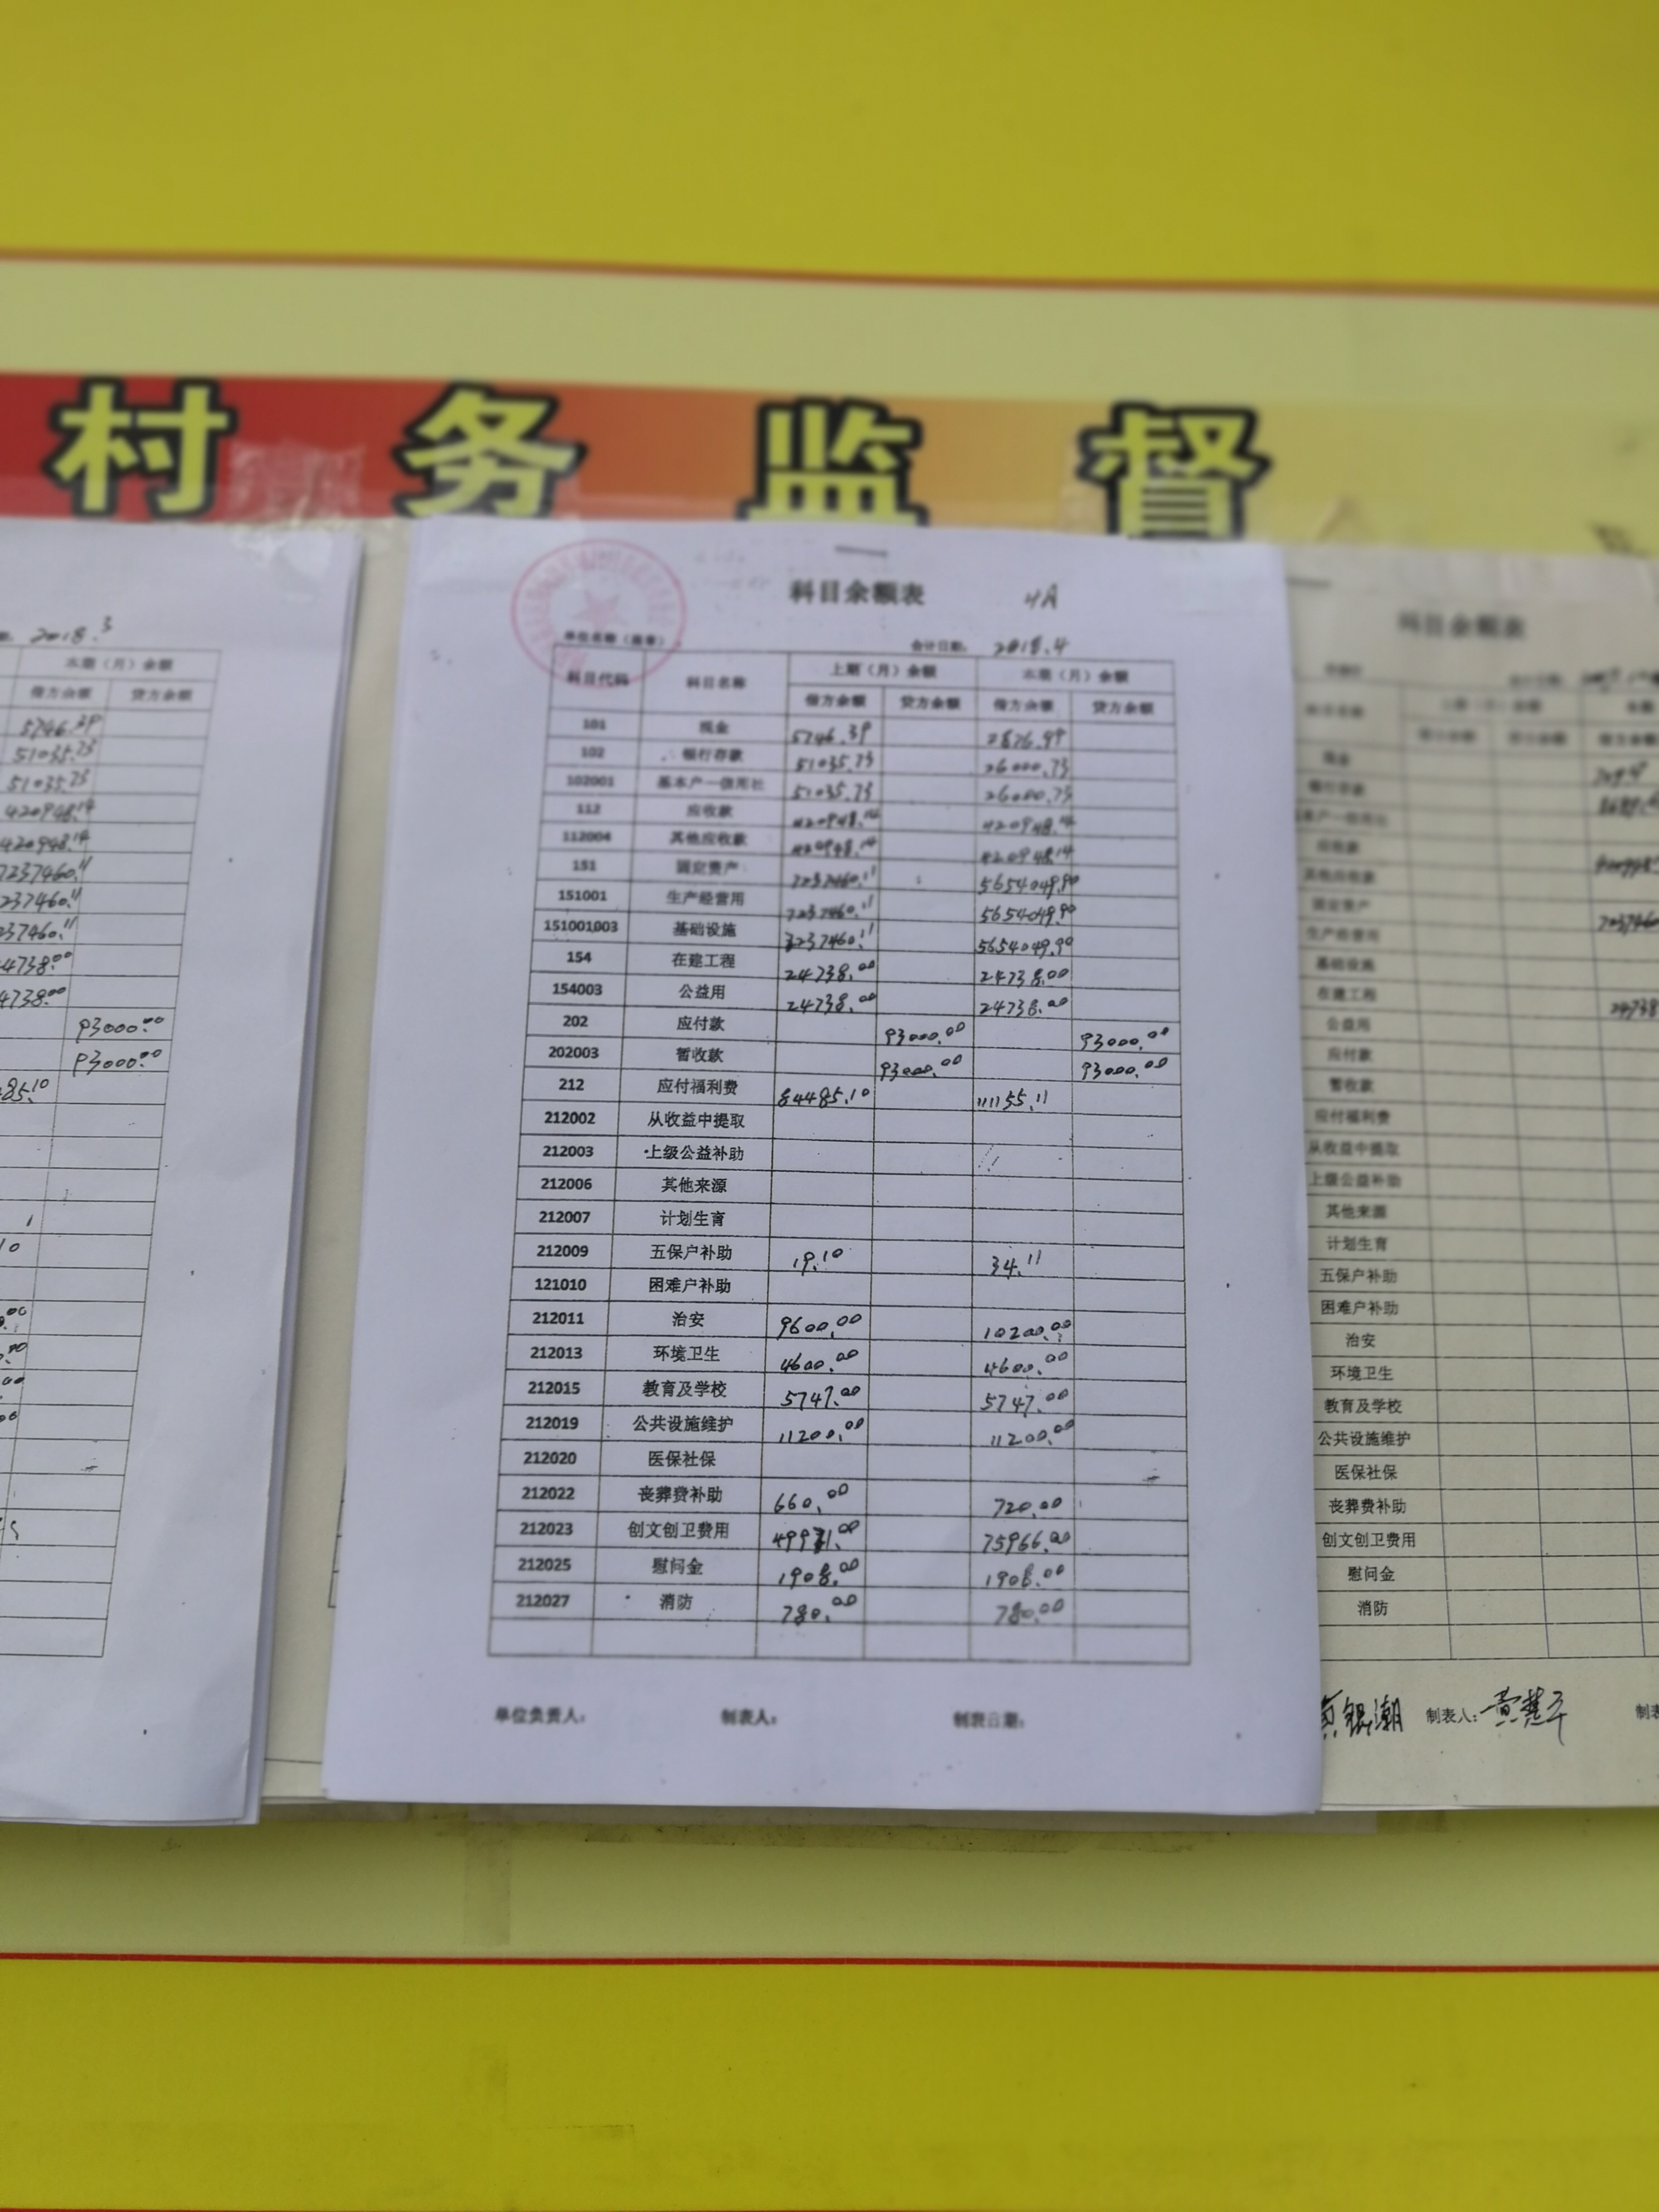 村务监督
2018.3
本期（月）余额
借方余额 贷方余额
5746.39
51035.73
51035.73
420948.14
420948.14
7237460.11
237460.11
237460.11
4738.00
4738.00
93000.00
93000.00
85.10
科目余额表 4A
单位名称（盖章） 会计日期： 2018.4
科目代码 科目名称 上期（月）余额 本期（月）余额
借方余额 贷方余额 借方余额 贷方余额
101 现金 5746.39 2876.99
102 银行存款 51035.73 26000.73
102001 基本户一信用社 51035.73 26000.73
112 应收款 420948.14 420948.14
112004 其他应收款 420948.14 420948.14
151 固定资产 7237460.11 5654049.90
151001 生产经营用 7237460.11 5654049.90
151001003 基础设施 7237460.11 5654049.90
154 在建工程 24738.00 24738.00
154003 公益用 24738.00 24738.00
202 应付款 93000.00 93000.00
202003 暂收款 93000.00 93000.00
212 应付福利费 84485.10 111155.11
212002 从收益中提取
212003 上级公益补助
212006 其他来源
212007 计划生育
212009 五保户补助 19.10 34.11
121010 困难户补助
212011 治安 9600.00 10200.00
212013 环境卫生 4600.00 4600.00
212015 教育及学校 5747.00 5747.00
212019 公共设施维护 11200.00 11200.00
212020 医保社保
212022 丧葬费补助 660.00 720.00
212023 创文创卫费用 49971.00 75966.00
212025 慰问金 1908.00 1908.00
212027 消防 780.00 780.00
单位负责人： 制表人： 制表日期：
科目余额表
现金
银行存款
应收款
其他应收款
固定资产
生产经营用
基础设施
在建工程 24738
公益用
应付款
暂收款
应付福利费
从收益中提取
上级公益补助
其他来源
计划生育
五保户补助
困难户补助
治安
环境卫生
教育及学校
公共设施维护
医保社保
丧葬费补助
创文创卫费用
慰问金
消防
银潮 制表人： 制表